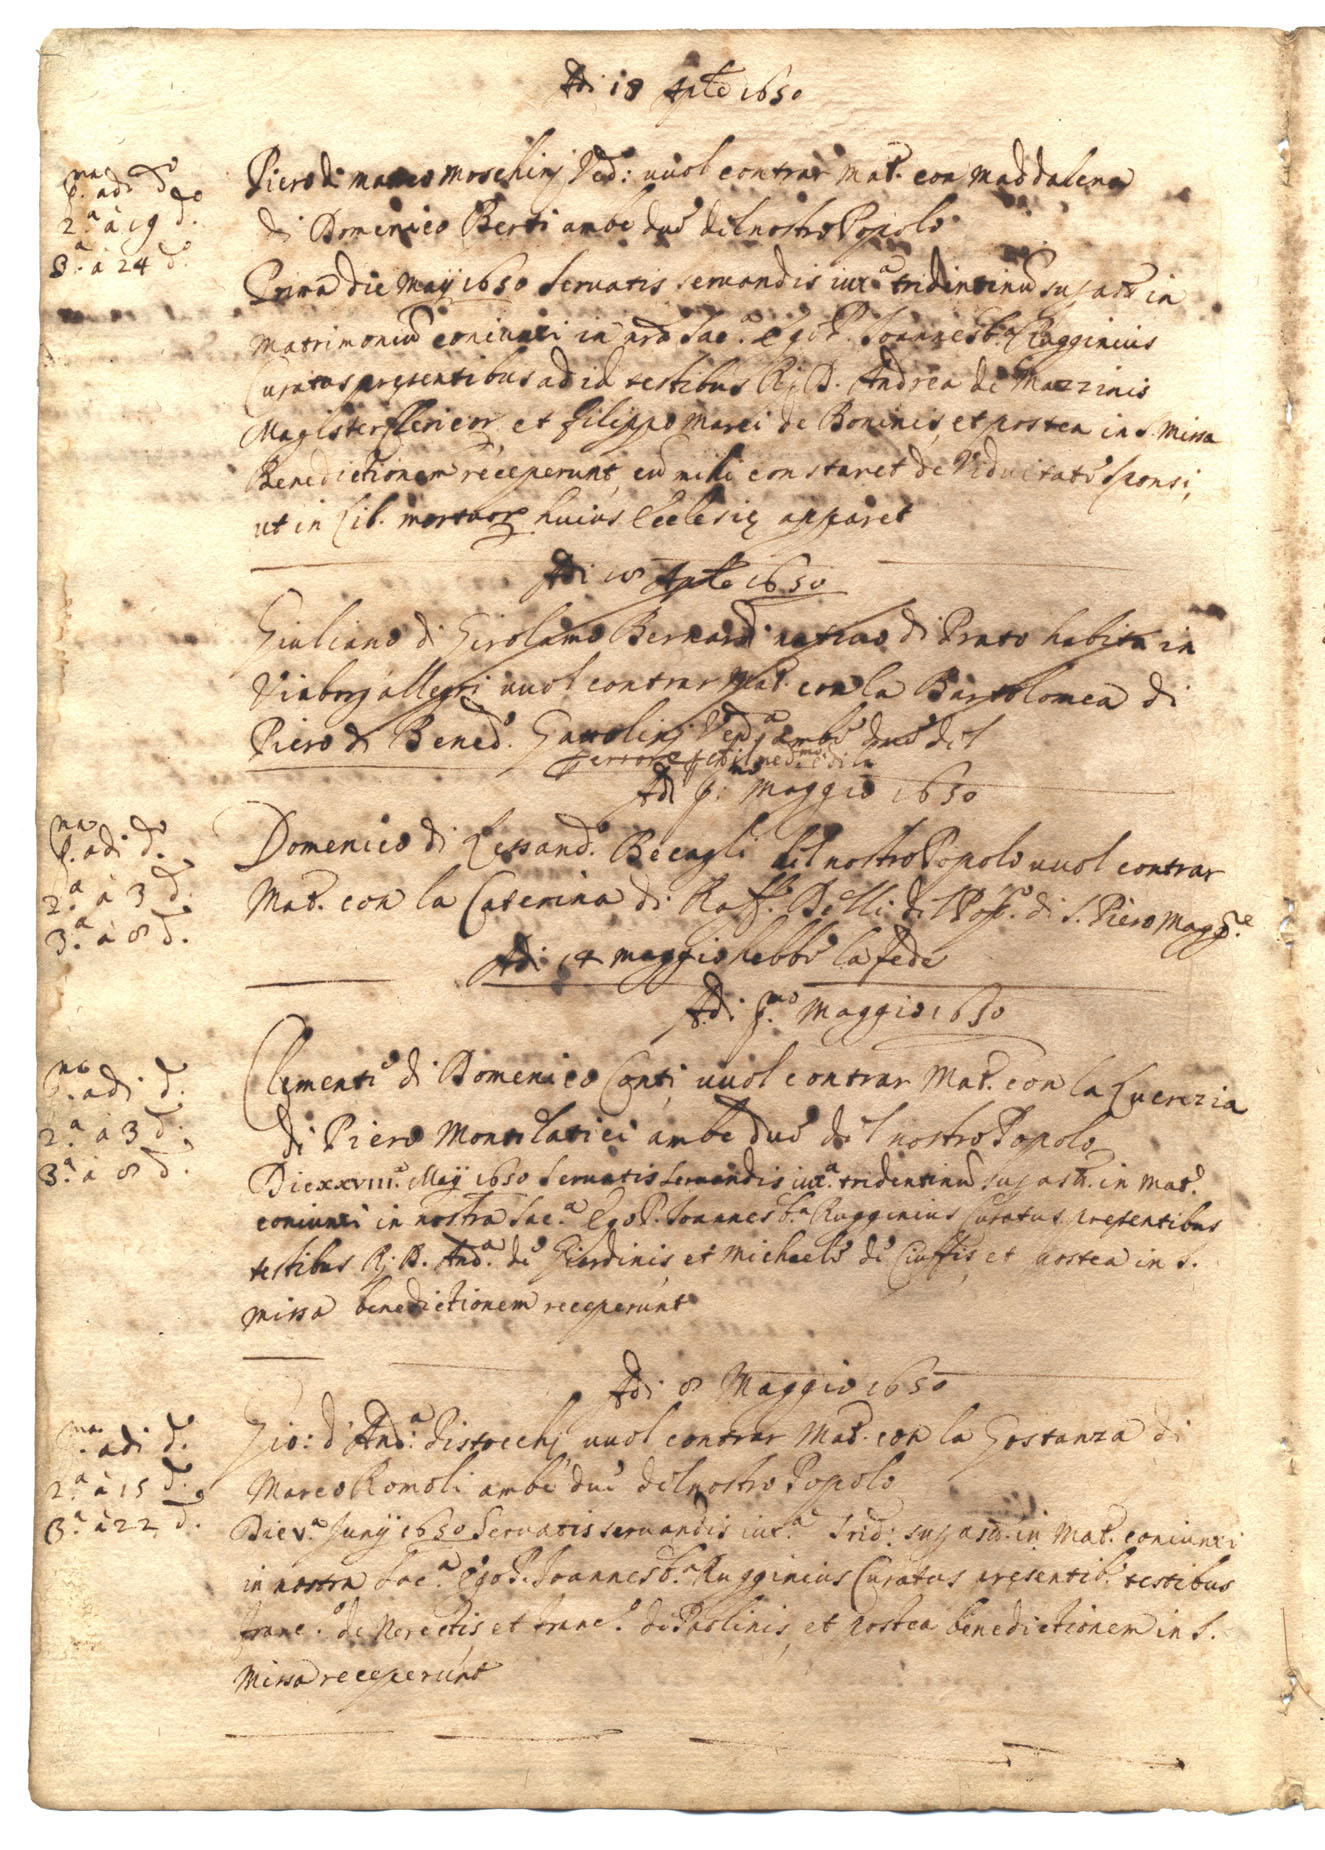 Adi 18 Aple 1650
p.ma adi do
2.a à 19 do
3.a à 24 do
Piero di Marco Moschinj Ved: vuol contrar Mat.o con Maddalena
di Domenico Berti ambe dué del nostro Popolo
Prima die Maij 1650 servatis servandis iux.a tridentinū supasti in
Matrimoniū coniunxi in nrā Sac.a Ego P. Joannes b.a Rugginius
Curatus presentibus ad id testibus Rj D. Andrea de Mazzinis
Magister Clericor, et Filippo Marci de Boninis, et postea in s. Missa
Benedictionem receperunt, cū mihi constaret de Viduitate sponsi,
ut in Lib. mortuor huius Ecclesię apparet
Adi 18 Aple 1650
Giuliano di Girolamo Bernardi nativo di Prato habita in
Via borg allegri vuol contrar Mat.o con la Bartolomea di
Piero di Bened.o Gavolinj Ved.a ambe dué del
Adi p.mo Maggio 1650
p.ma adi do.
2.a à 3 d.
3.a à 8 d.
Domenico di Lessand.o Becagli del nostro Popolo vuol contrar
Mat.o con la Caterina di Raff.o Belli del Pop.o di S. Piero Magg.re
Adi 14 maggio hebbe la fede
Adi p.mo Maggio 1650
p.ma adi d.
2.a à 3 d.
3.a à 8 d.
Clementé di Domenico Conti vuol contrar Mat.o con la Lucrezia
di Piero Montelatici ambe dué del nostro Popolo
Die xxviii.a Maij 1650 Servatis servandis iux.a tridentinū supasti. in Mat.o
coniunxi in nostra Sac.a Ego P. Joannes b.a Rugginius Curatus presentibus
testibus Rj D. And.a de Giardinis, et Michaele de Ciuffis, et postea in s.
missa benedictionem receperunt
Adi 8 Maggio 1650
p.ma adi d.
2.a à 15 d.
3.a à 22 d.
Gio: d'And.a Distecchj vuol contrar Mat.o con la Gostanza di
Marco Romoli ambe dué del nostro Popolo
Die v.a Junij 1650 Servatis servandis iux.a Trid: supasti. in Mat.o coniunxi
in nostra Sac.a Ego P. Joannes b.a Rugginius Curatus presentib. testibus
Franc.o de Nerectis, et Franc.o de Paolinis, et postea benedictionem in s.
missa receperunt